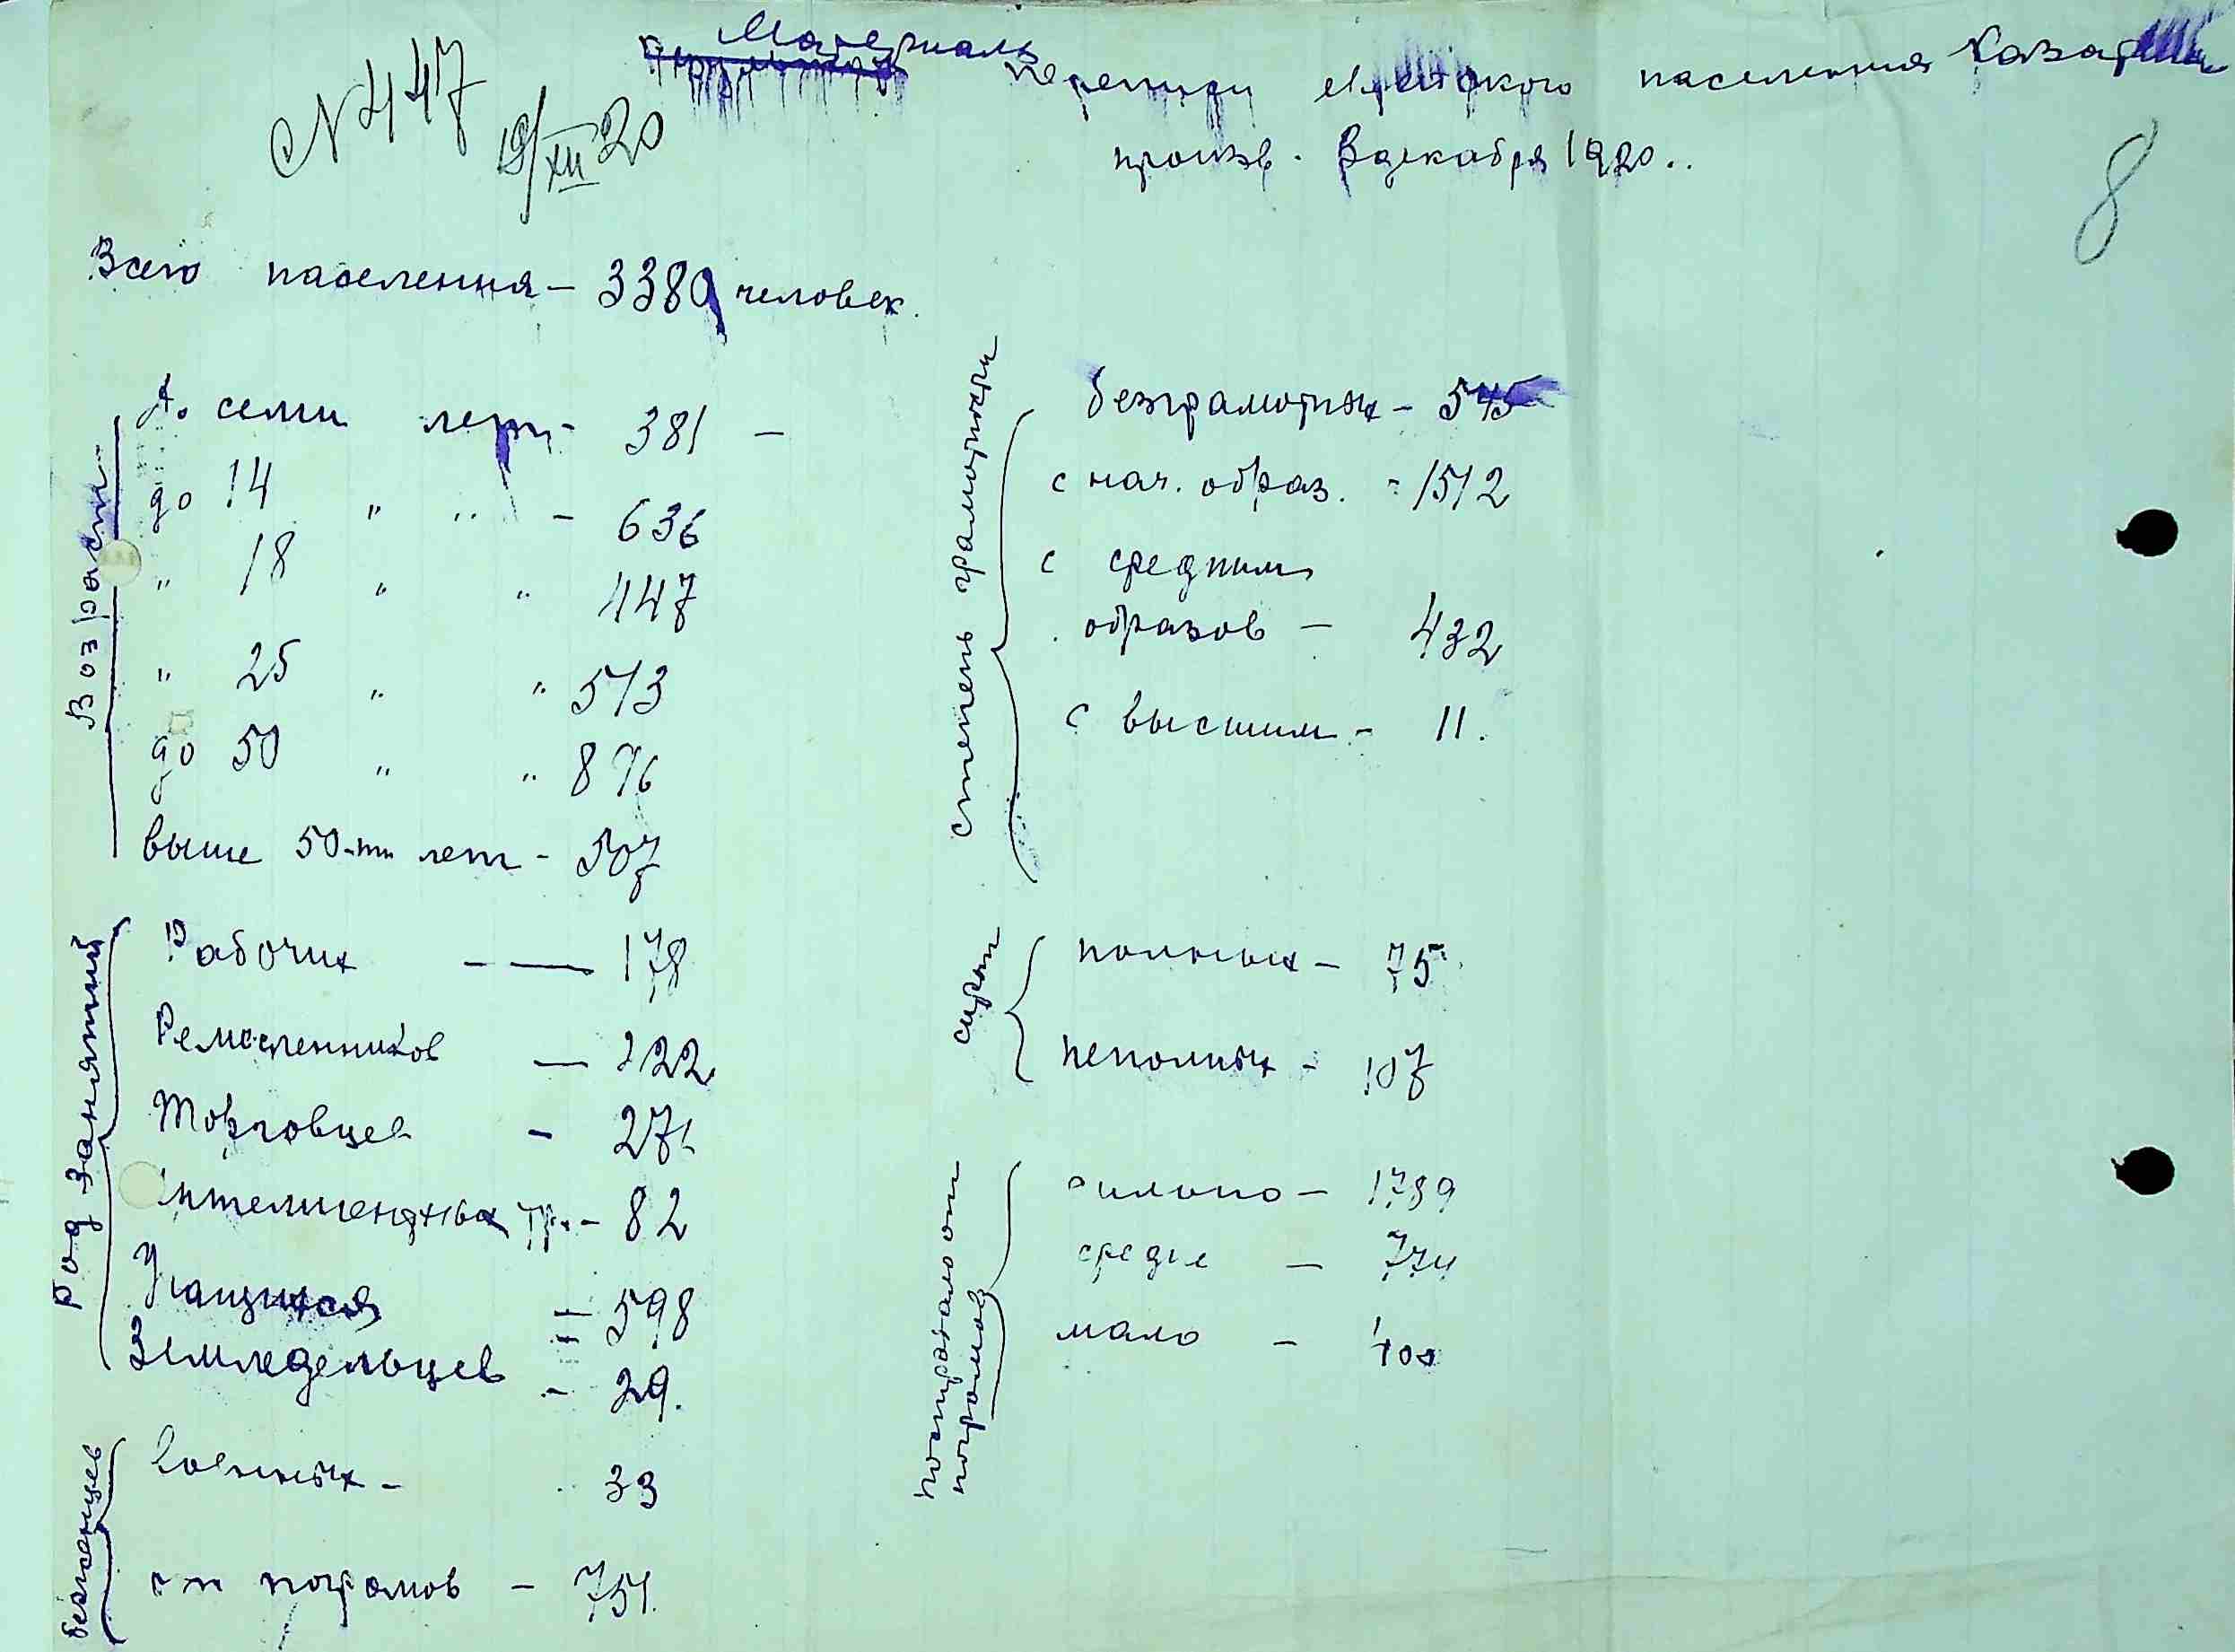 Материалы переписи еврейского населения
№ 447 19/XII 20
произв. 8 декабря 1920..
8
Всего населения – 3380 человек.
Возраст
До семи лет - 381 –
до 14 " " - 636
" 18 " " 447
" 25 " " 513
до 50 " " 876
выше 50-ти лет - 507
Род занятий
Рабочих — 178
Ремесленников — 222
Торговцев - 271
Интелигентных тр. - 82
Учащихся = 598
Земледельцев - 29.
беженцев
Военных - 33
от погромов - 751.
степень грамотности
безграмотных - 545
с нач. образ. - 1512
с средним
образов - 432
с высшим - 11.
сирот
полных - 75
неполных - 107
пострадало от
погромов
сильно - 1789
средне - 774
мало - 400